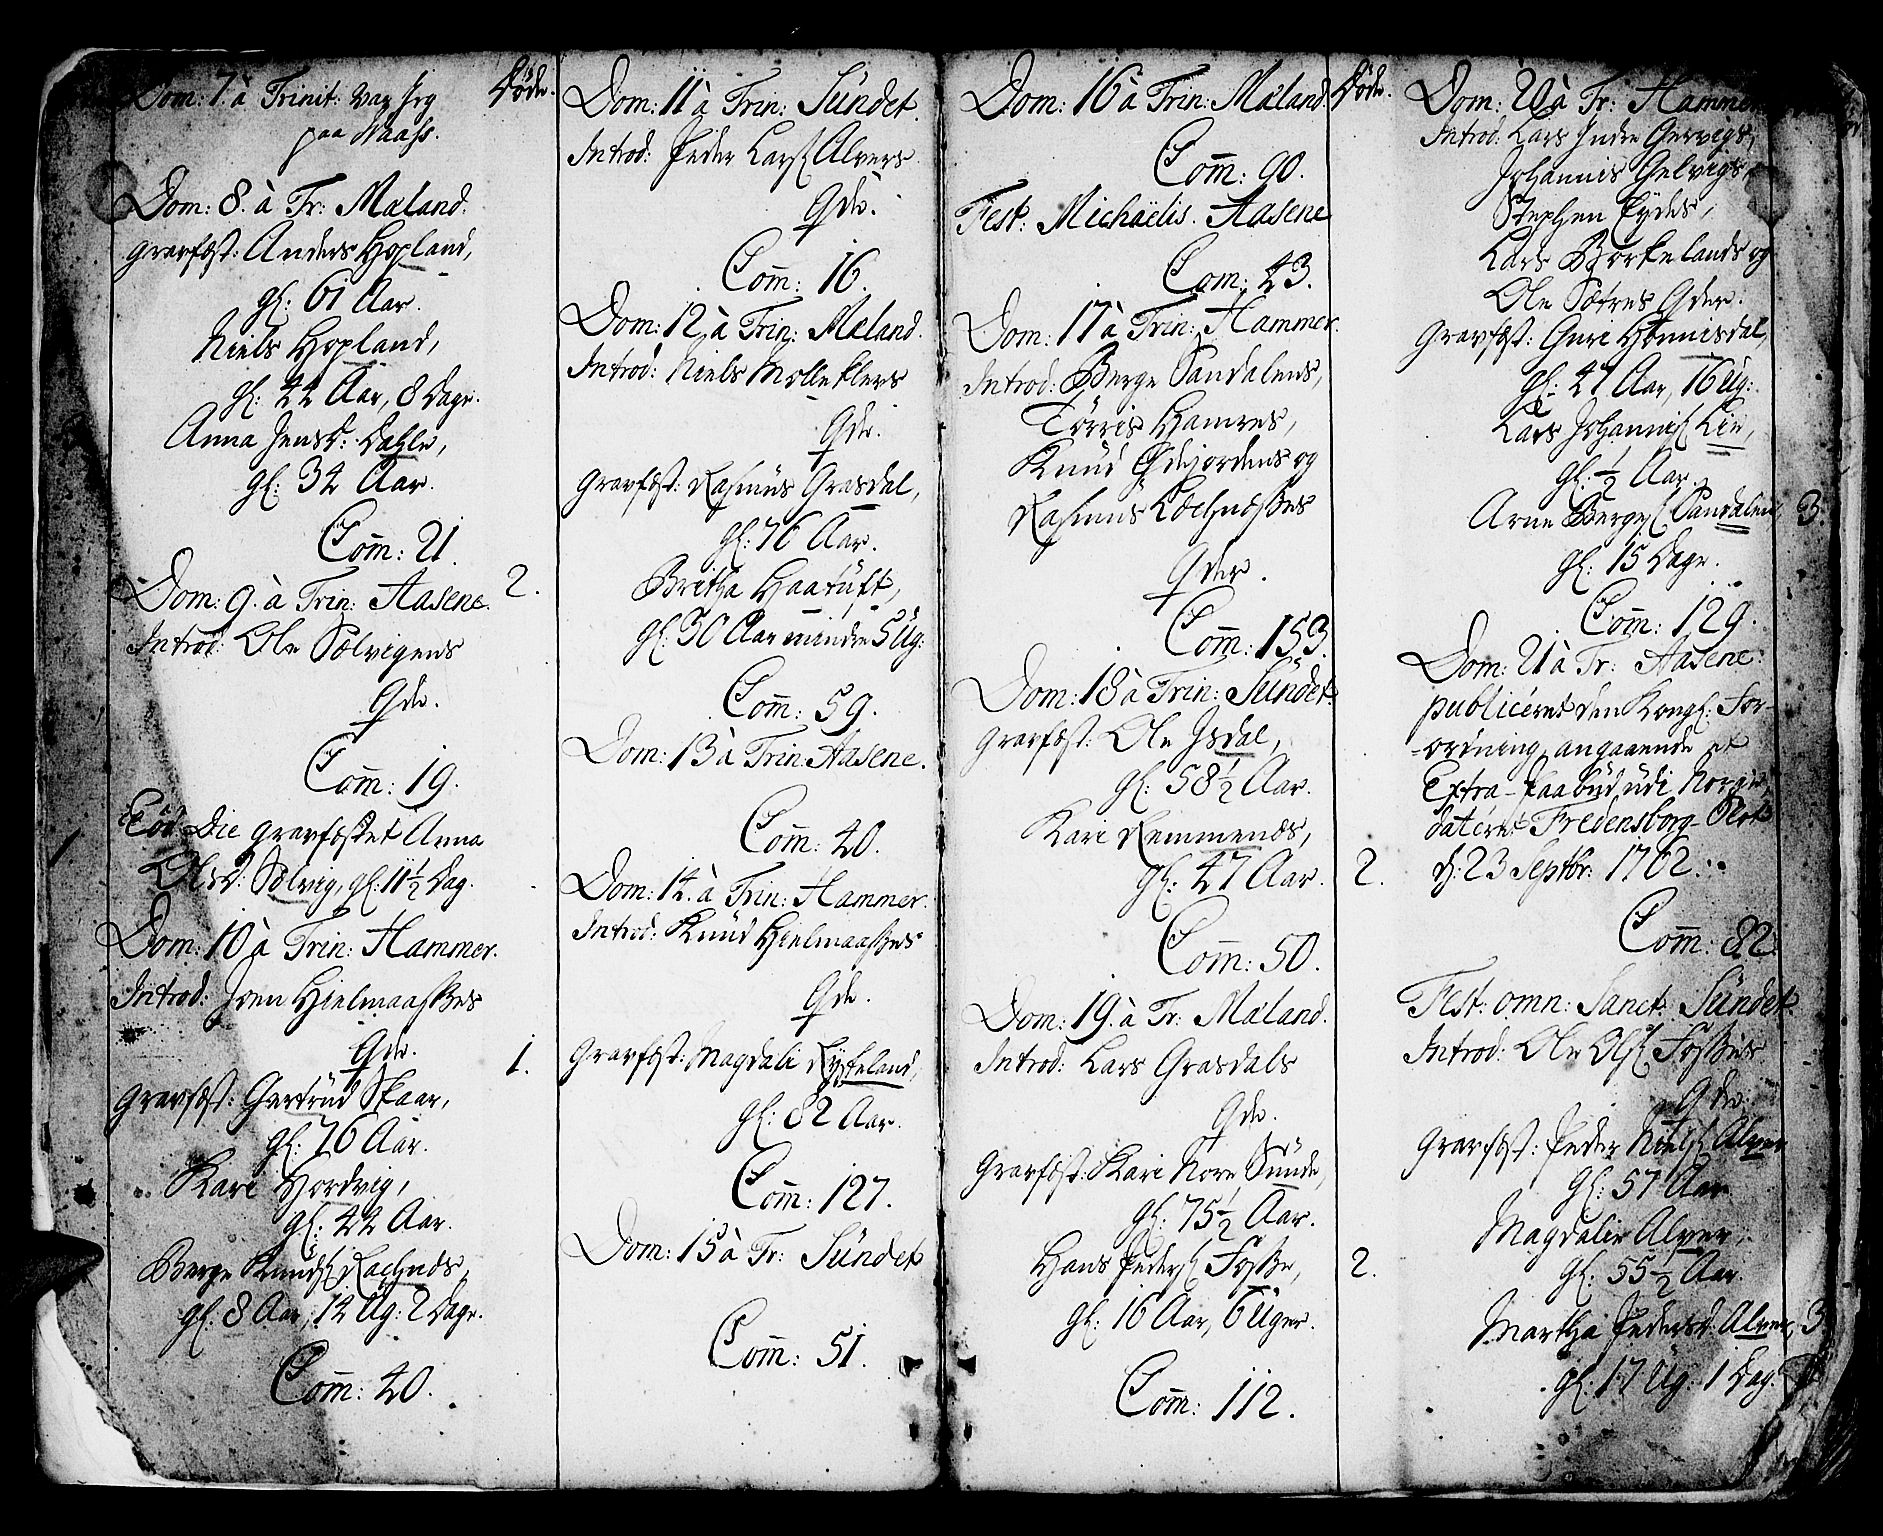 Dom: 7 à Trinit: var jeg
paa Naafs.
Døde.
Dom: 8. à Tr: Mæland.
Gravfæst: Anders Hopland,
gl: 61 Aar.
Niels Hopland,
gl: 44 Aar, 8 Dage.
Anna Jensd: Dahle,
gl: 34 Aar.
Com̅: 21.
Dom: 9. à Trin: Aasene. 2.
Introd: Ole Sælvigens
Qde.
Com̅: 19.
Eod: Die gravfæstet Anna
Olsd: Sælvig, gl: 11½ Dag.
1
Dom: 10 à Trin: Hammer.
Introd: Joen Hielmaaßes
Qde.
1.
Gravfæst: Giertrüd Skaar,
gl: 76 Aar.
Kari Hordvig,
gl: 44 Aar.
Berge Knüds:
gl: 8 Aar, 14 Ug: 2 Dage.
Com̅: 40.
Dom: 11 à Trin: Sündet.
Introd: Peder Lars: Alvers
Qde.
Com̅: 16.
Dom: 12 à Trin: Mæland.
Introd: Niels Mølleklevs
Qde.
Gravfæst: Rasmüs Grasdal,
gl: 76 Aar.
Britha Haatüft,
gl: 30 Aar mindre 5 Üg:
Com̅: 59.
Dom: 13 à Trin: Aasene.
Com̅: 40.
Dom: 14. à Trin: Hammer.
Introd: Knüd Hielmaaßes
Qde.
Gravfæst: Magdali Rysteland,
gl: 82 Aar.
Com̅: 127.
Dom: 15 à Tr: Sündet
Com̅: 51.
Dom: 16 à Trin: Mæland.
Døde.
Com̅: 90.
Fest: Michaëlis. Aasene
Com: 43.
Dom: 17 à Trin: Hammer.
Introd: Berge Sandalens,
Tørris Hamres,
Knüd Ødejordens og
Rasmüs
Qder.
Com̅: 153.
Dom: 18 à Trin: Sündet.
Gravfæst: Ole Isdal,
gl: 58½ Aar.
Kari Remmenes,
gl: 47 Aar. 2.
Com̅: 50.
Dom: 19. à Tr: Mæland.
Introd: Lars Grasdals
Qde.
Gravfæst: Kari Nore Sünde,
gl: 75½ Aar.
Hans Peders: Foße, 2.
gl: 16 Aar, 6 Üger.
Com̅: 112.
Dom: 20 à Tr: Hammer
Introd: Lars Indre Giervigs,
Johannis Gelvigs,
Stephen Eydes,
Lars Børkelands og
Ole Sætres Qder.
Gravfæst: Guri Hønnisdal,
gl: 47 Aar, 16 Üg:
Lars Johannis: Lie,
gl: ½ Aar.
Arne Berges: Sandalen 3.
gl: 15 Dage.
Com̅: 129.
Dom: 21 à Tr: Aasene.
publiceret den Kongl: For-
-ordning, angaaende et
Extra-Paabüd udi Norge,
dateret Fredensborg-Slot
d: 23 Septbr: 1762.
Com̅: 82.
Fest: omn: Sanct: Sündet.
Introd: Ole Ols: Foßes
Qde.
Gravfæst: Peder Niels: Alver
gl: 57 Aar
Magdalie Alver,
gl: 55½ Aar.
Martha Pedersd: Alver, 3
gl: 17 Üg: 1 Dag.